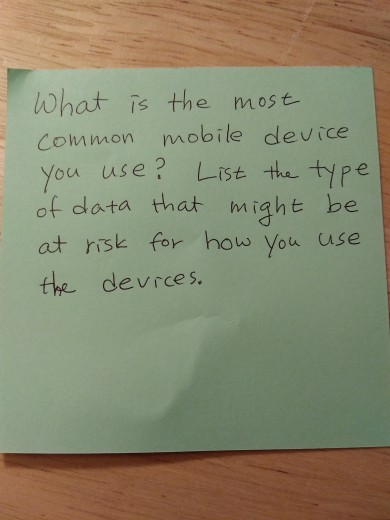 What is the most
common mobile device
you use? List the type
of data that might be
at risk for how you use
the devices.